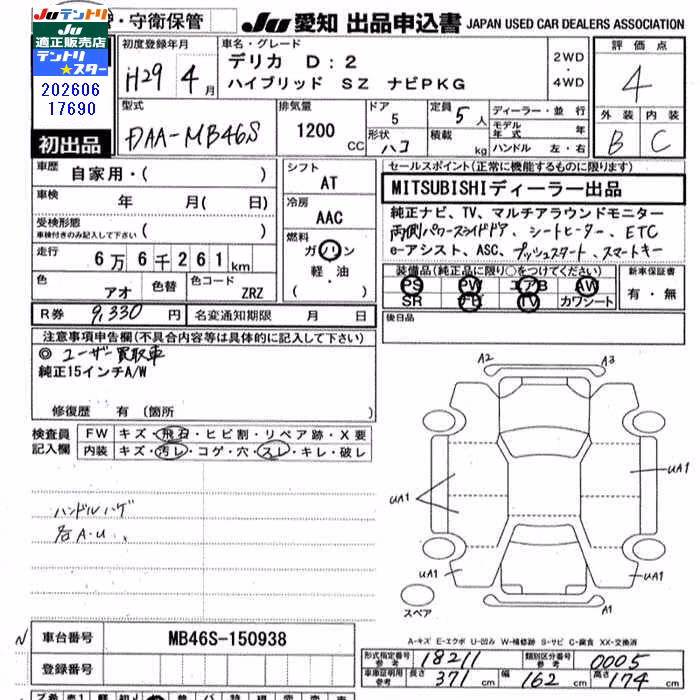 JU テントリ
JU
適正販売店
テントリ
★スター
202606
17690
・守衛保管
JU 愛知 出品申込書 JAPAN USED CAR DEALERS ASSOCIATION
初度登録年月
H29 4月
車名・グレード
デリカ D:2
ハイブリッド SZ ナビPKG
2WD
・
4WD
評価点
4
外装 内装
B C
初出品
型式
DAA-MB46S
排気量
1200 CC
ドア
5
形状
ハコ
定員 5人
積載 kg
ディーラー・並行
モデル年式 年
ハンドル 左・右
車歴
自家用・( )
車検
年 月( 日)
受検形態
車検付きのみ記入して下さい ( )
走行
6万6千261km
色
アオ
色替
色コード
ZRZ
シフト
AT
冷房
AAC
燃料
ガソリン
軽・油
( )
セールスポイント(正常に機能するものに限ります)
MITSUBISHIディーラー出品
純正ナビ、TV、マルチアラウンドモニター
両側パワースライドドア、シートヒーター、ETC
e-アシスト、ASC、プッシュスタート、スマートキー
装備品(純正品に限り○をつけてください)
PS PW エアB AW
SR TV カワシート
新車保証書
有・無
後日品
R券 9,330円
名変通知期限 月 日
注意事項申告欄(不具合内容等は具体的に記入して下さい)
◎ユーザー買取車
純正15インチA/W
修復歴 有 (箇所 )
検査員
記入欄
FW キズ・飛石・ヒビ割・リペア跡・X要
内装 キズ・汚レ・コゲ・穴・スレ・キレ・破レ
ハンドルハゲ
各A.U..
A2 A3
UA1 UA1
UA1 UA1
A1
スペア
N
車台番号 MB46S-150938
登録番号
A-キズ E-エクボ U-凹み W-補修跡 S-サビ C-腐食 XX-交換済
形式指定番号
参考
18211
類別区分番号
参考
0005
車庫証明用
参考
長さ 371cm 幅 162cm 高さ 174cm